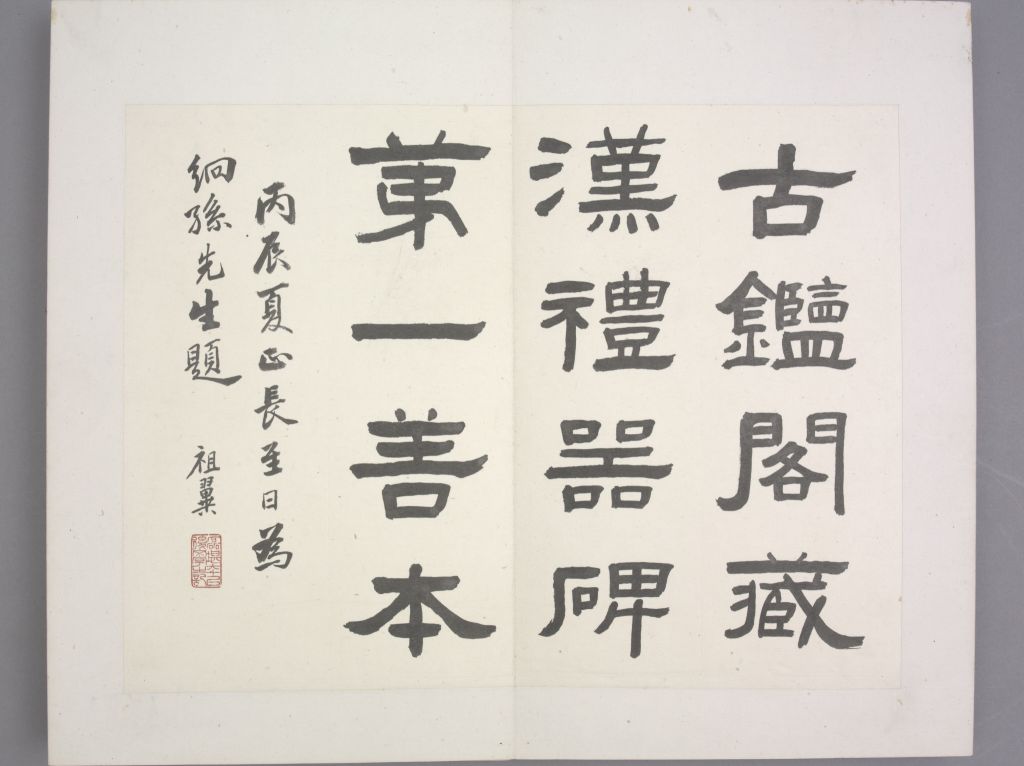 古鑑閣藏
漢禮器碑
苐一善本
丙辰夏正長至日為
絅孫先生題
祖翼